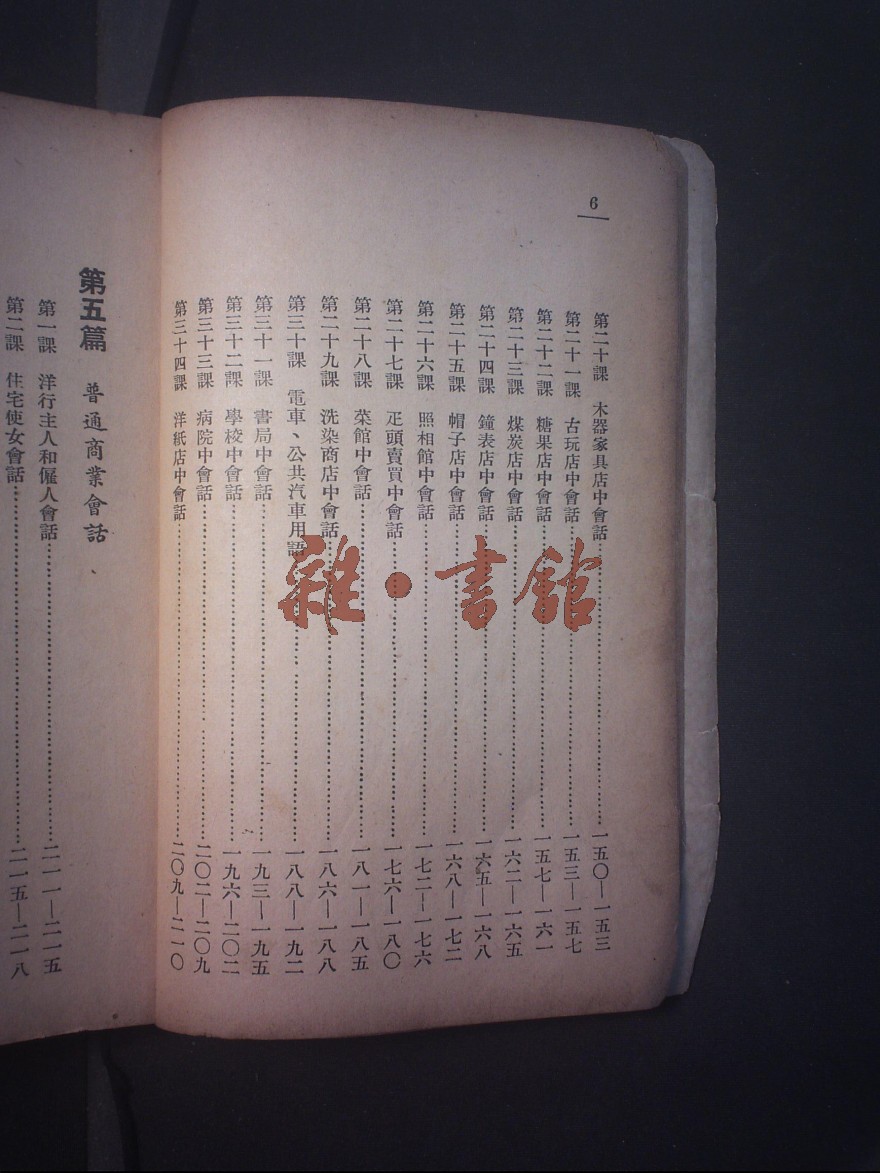 6
第二十課　木器家具店中會話……一五〇—一五三
第二十一課　古玩店中會話……一五三—一五七
第二十二課　糖果店中會話……一五七—一六一
第二十三課　煤炭店中會話……一六二—一六五
第二十四課　鐘表店中會話……一六五—一六八
第二十五課　帽子店中會話……一六八—一七二
第二十六課　照相館中會話……一七二—一七六
第二十七課　疋頭賣買中會話……一七六—一八〇
第二十八課　菜館中會話……一八一—一八五
第二十九課　洗染商店中會話……一八六—一八八
第三十課　電車、公共汽車用語……一八八—一九二
第三十一課　書局中會話……一九三—一九五
第三十二課　學校中會話……一九六—二〇二
第三十三課　病院中會話……二〇二—二〇九
第三十四課　洋紙店中會話……二〇九—二一〇
第五篇　普通商業會話
第一課　洋行主人和僱人會話……二一一—二一五
第二課　住宅使女會話……二一五—二一八
雜·書館